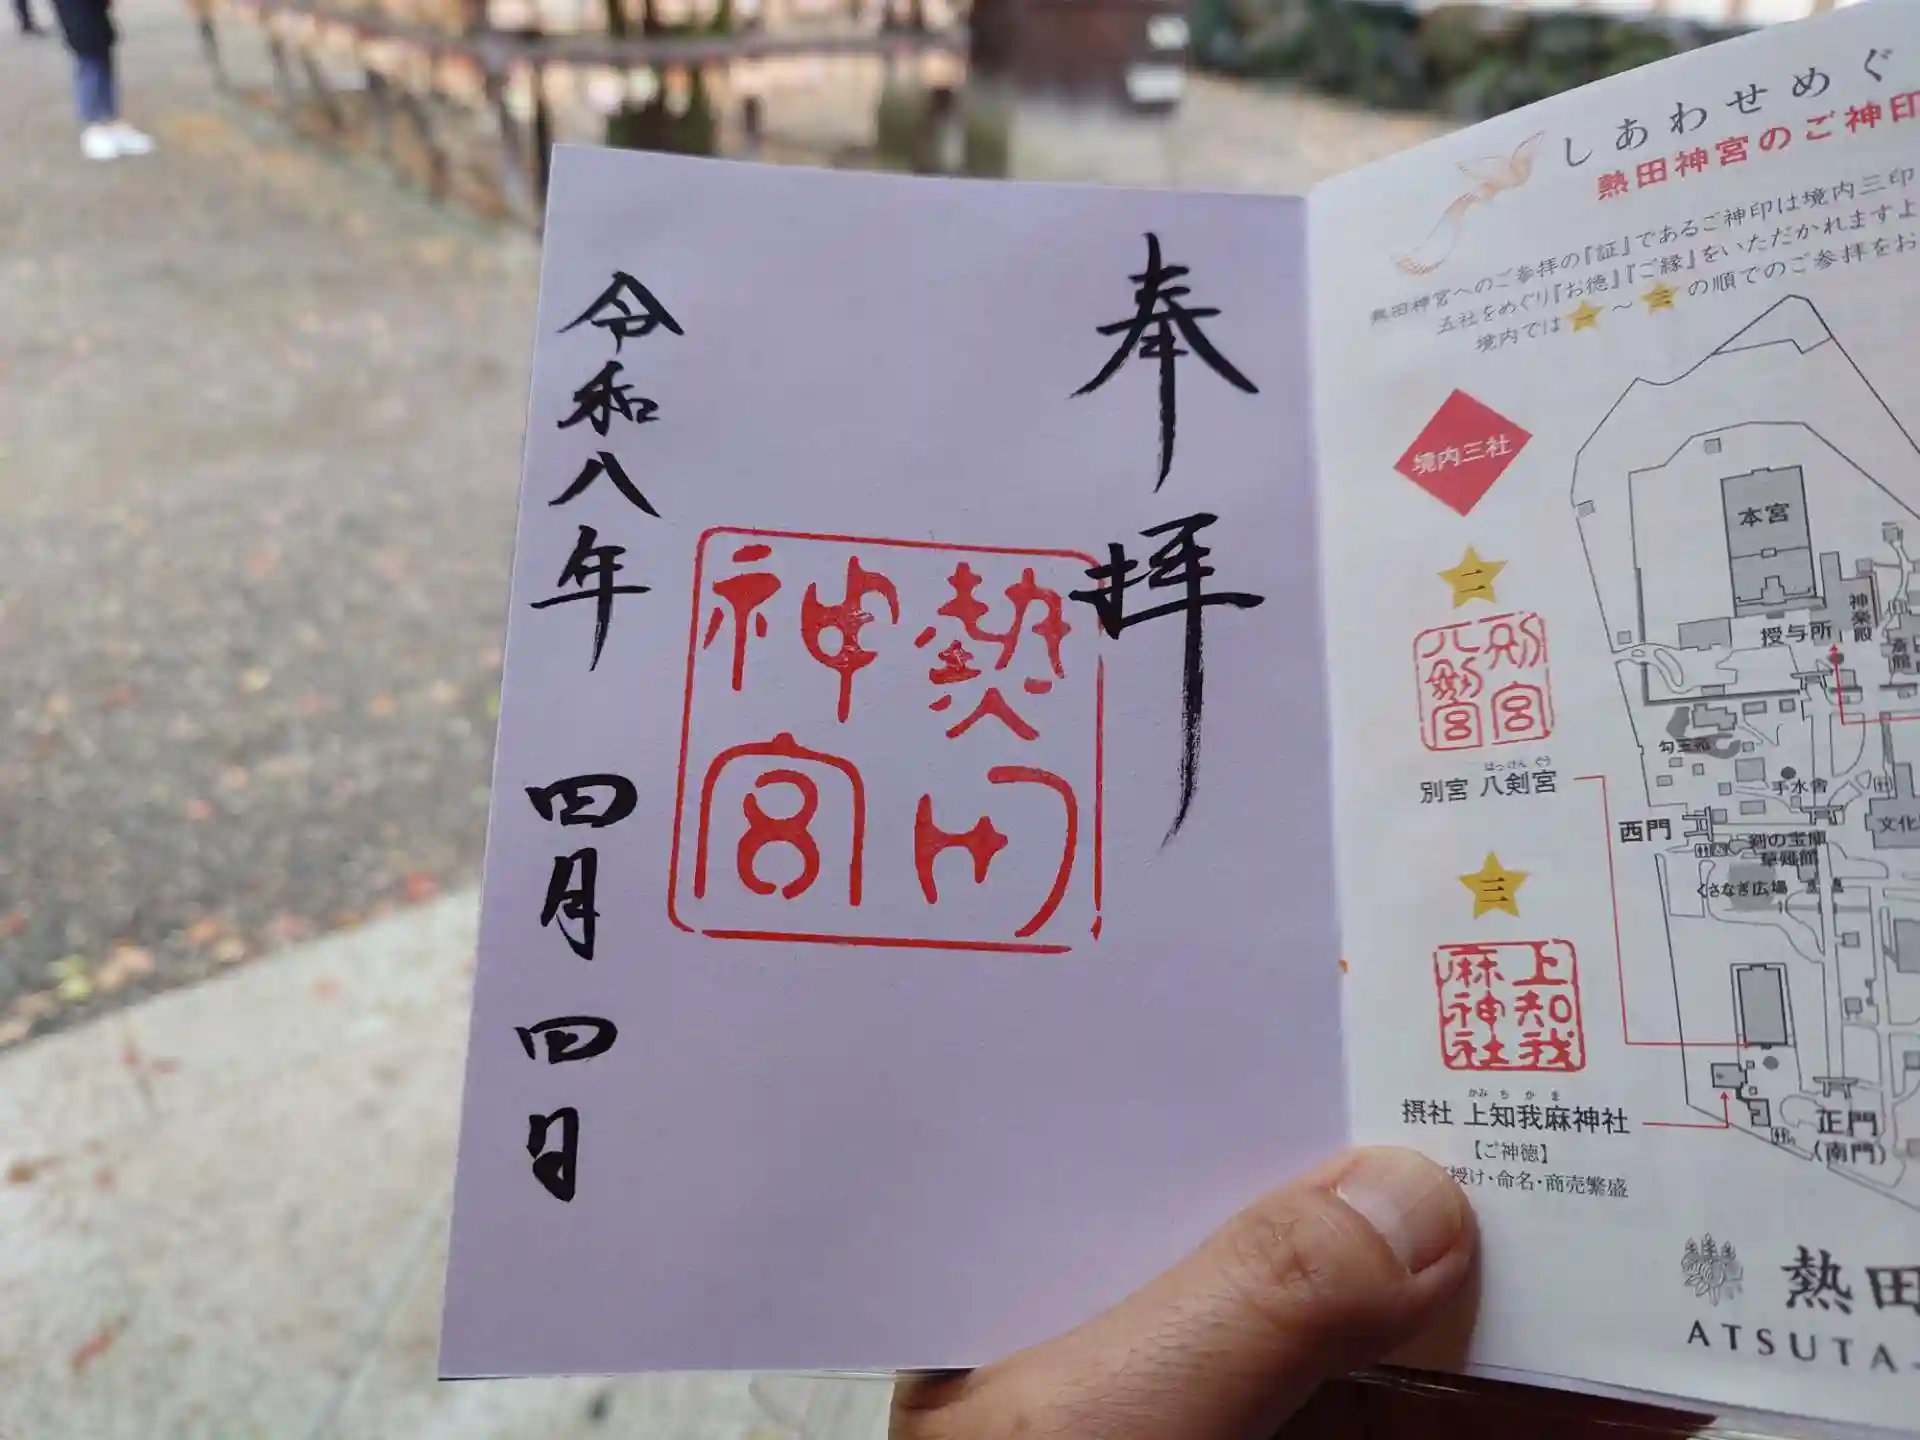 奉拝
熱田
神宮
令和八年 四月 四日
しあわせめぐ
熱田神宮のご神印
熱田神宮へのご参拝の『証』であるご神印は境内三印
五社をめぐり『お徳』『ご縁』をいただかれますよ
境内では 一 〜 三 の順でのご参拝をお
境内三社
二
別宮
八剣宮
はっけんぐう
別宮 八剣宮
三
上知我
麻神社
かみちかま
摂社 上知我麻神社
【ご神徳】
授け・命名・商売繁盛
本宮
神楽殿
授与所
勾玉池
手水舎
西門
文化
剣の宝庫
草薙館
くさなぎ広場
正門
(南門)
熱田
ATSUTA